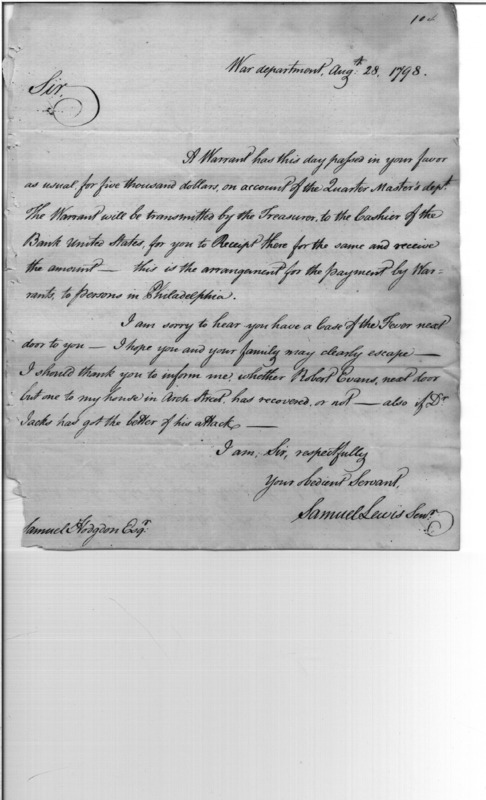 War department, Augt. 28, 1798.
Sir,
A Warrant has this day passed in your favor
as usual, for five thousand dollars, on account of the Quarter Master's dept.
The Warrant will be transmitted by the Treasurer, to the Cashier of the
Bank United States, for you to Receipt there for the same and receive
the amount — this is the arrangement for the payment by War-
rants, to persons in Philadelphia.
I am sorry to hear you have a Case of the Fever next
door to you — I hope you and your family may clearly escape —
I should thank you to inform me, whether Robert Evans, next door
but one to my house in Arch Street, has recovered, or not — also if Dr.
Jacks has got the better of his attack —
I am, Sir, respectfully
Your obedient Servant,
Samuel Lewis Senr.
Samuel Hodgdon Esqr.